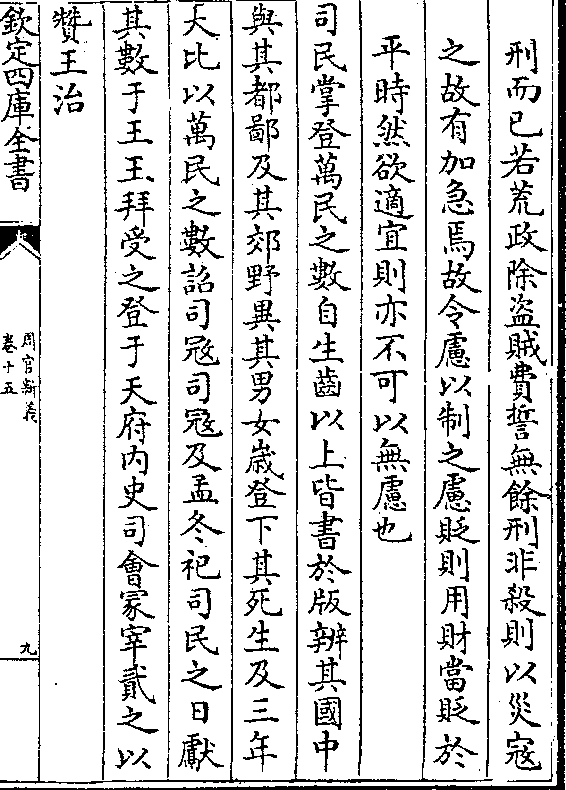 刑而已若荒政除盗賊費誓無餘刑非殺則以災寇
之故有加急焉故令慮以制之慮貶則用財當貶於
平時然欲適宜則亦不可以無慮也
司民掌登萬民之數自生齒以上皆書於版辨其國中
與其都鄙及其郊野異其男女歳登下其死生及三年
大比以萬民之數詔司寇司寇及孟冬祀司民之日獻
其數于王王拜受之登于天府内史司會冡宰貳之以
贊王治
欽定四庫全書
周官新義
卷十五
九